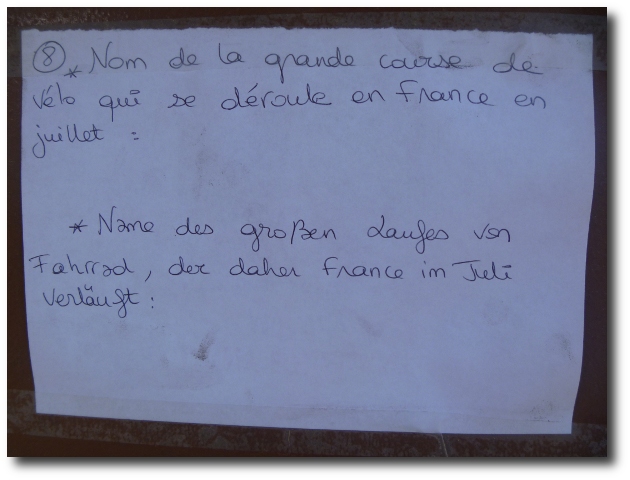 ⑧ * Nom de la grande course de
vélo qui se déroule en France en
juillet :
* Name des großen Laufes von
Fahrrad, der daher France im Juli
verläuft :